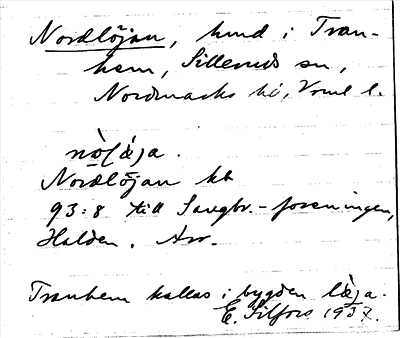 Nordlöjan, hmd i Tran-
hem, Sillerud sn,
Nordmarks hd, Vrml l.
Nordlöjan kb
93:8 till Saugbr.-foreningen,
Halden. Arr.
Tranhem kallas i bygden
E. Silfors 1937.